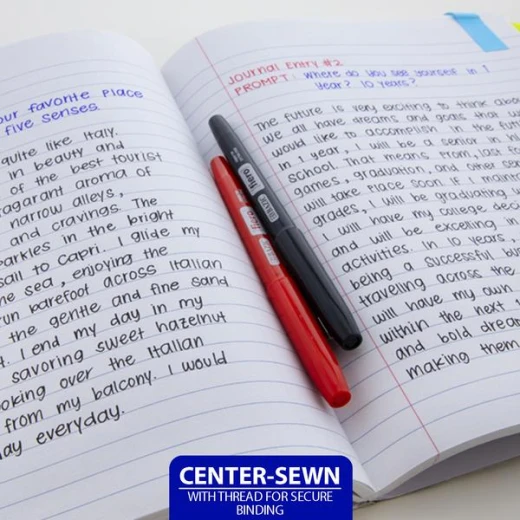 our favorite place
five senses.
quite like Italy.
in beauty and
of the best tourist
fragarant aroma of
narrow alleys,
and cravings. The
sparkles in the bright
sail to Capri. I glide my
the sea, enjoying the
run barefoot across Italian
the gentle and fine sand
I end my day in my
savoring sweet hazelnut
looking over the Italian
from my balcony. I would
day everyday.
Journal Entry #2
PROMPT: Where do you see yourself in 1
year? 10 years?
The future is very exciting to think about
We all have dreams and goals that we
would like to accomplish in the future
in 1 year, I will be a senior in
school. That means prom, last
games, graduation, and other
will take place soon. If I
grades, I will be graduating
I will have my college
and will be excelling in
activities. In 10 years,
being a successful
traveling across the
will have my own
within the next
and bold
making them
fiero
CENTER-SEWN
WITH THREAD FOR SECURE
BINDING